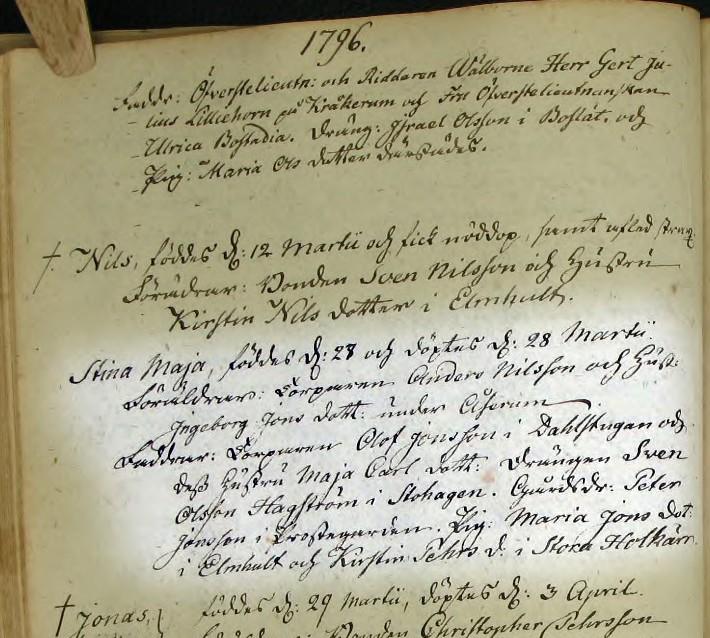 1796.
Faddr: Öfverstelieutn: och Riddaren Wälborne Herr Gert Ju-
lius Lilliehorn på Kråkerum och Fru Öfverstelieutnanskan
Ulrica Bostadia. Dräng: Israel Olsson i Boslät. och
Pig: Maria Ols dotter därstädes.
†. Nils, föddes d: 12 Martii och fick nöddop, samt afled strax.
Föräldrar: Bonden Sven Nilsson och Hustru
Kirstin Nils dotter i Elmhult.
Stina Maja, föddes d: 28 och döptes d: 28 Martii
Föräldrar: Torparen Anders Nilsson och Hust:
Ingeborg Jons dott: under Åserum
Faddrar: Torparen Olof Jonsson i Dahlstugan och
dess Hustru Maja Carl dott: Drängen Sven
Olsson Hagström i Stohagen. Gårdsdr: Peter
Jonsson i Prostegården. Pig: Maria Jons dot:
i Elmhult och Kirstin Pehrs d: i Stora Holkärr.
† Jonas, föddes d: 29 Martii, döptes d: 3 April.
Bonden Christopher Pehrsson